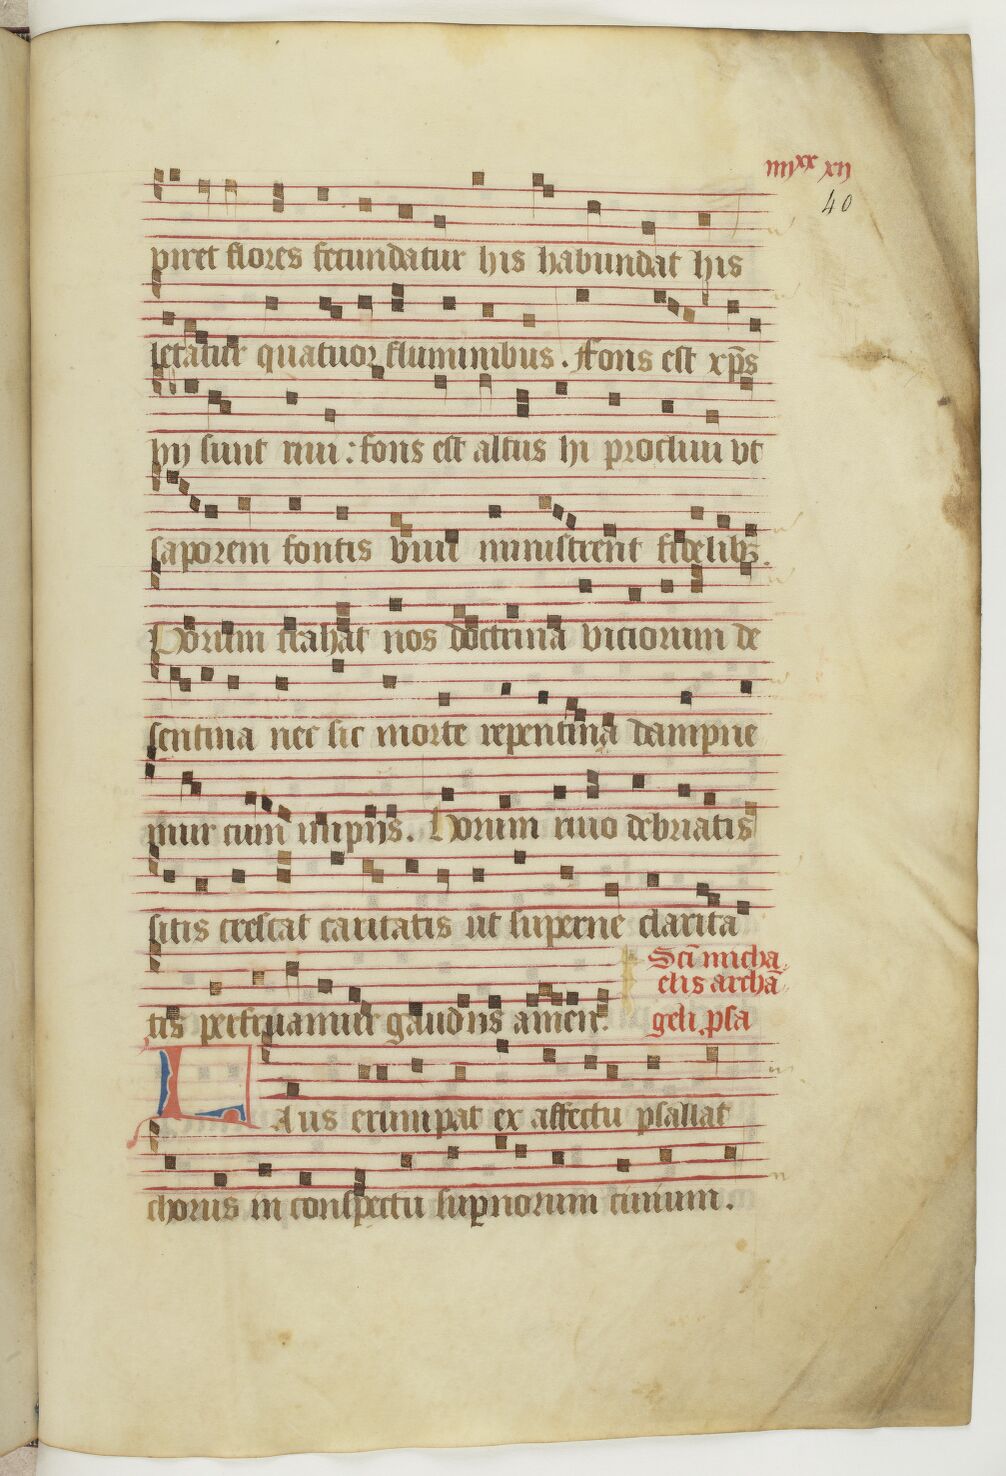 iiijxx xij
40
piret flores fecundatur his habundat his
letatur quatuor fluminibus. Fons est xp̄s
hij sunt riui: fons est altus hi procliui ut
saporem fontis uiui ministrent fidelibꝫ.
Horum trahat nos doctrina viciorum de
sentina nec sic morte repentina dampne
mur cum impijs. Horum riuo debriatis
sitis crescat caritatis ut superne clarita
tis perfruamur gaudijs amen.
Sc̄i micha
elis archā
geli. psa
Laus erumpat ex affectu psallat
chorus in conspectu suꝑnorum ciuium.